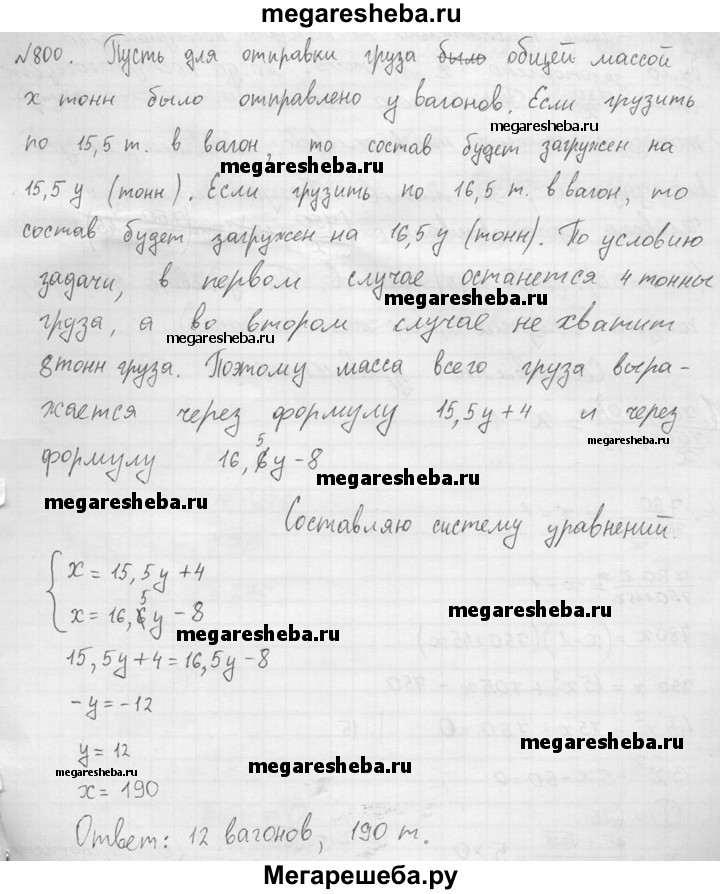 megaresheba.ru
№800. Пусть для отправки груза было общей массой
x тонн было отправлено y вагонов. Если грузить
megaresheba.ru
по 15,5 т. в вагон, то состав будет загружен на
megaresheba.ru
15,5 y (тонн). Если грузить по 16,5 т. в вагон, то
состав будет загружен на 16,5 y (тонн). По условию
задачи, в первом случае останется 4 тонны
megaresheba.ru
груза, а во втором случае не хватит
megaresheba.ru
8 тонн груза. Поэтому масса всего груза выра-
жается через формулу 15,5y+4 и через
megaresheba.ru
формулу 16,5y-8
megaresheba.ru
megaresheba.ru
Составляю систему уравнений.
x = 15,5y+4
x = 16,5y-8
megaresheba.ru
megaresheba.ru
15,5y+4=16,5y-8
-y=-12
y=12
megaresheba.ru
megaresheba.ru
x=190
Ответ: 12 вагонов, 190 т.
Мегарешеба.ру